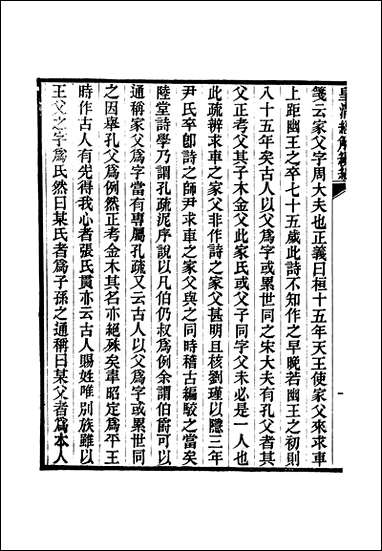 皇清經解續編
箋云家父字周大夫也正義曰桓十五年天王使家父來求車
上距幽王之卒七十五歲此詩不知作之早晚若幽王之初則
八十五年矣古人以父爲字或累世同之宋大夫有孔父者其
父正考父其子木金父此家氏或父子同字父未必是一人也
此疏辨求車之家父非作詩之家父甚明且核劉瑾以隱三年
尹氏卒卽詩之師尹求車之家父與之同時稽古編駮之當矣
陸堂詩學乃謂孔疏泥序說以凡伯仍叔爲例余謂伯爵可以
通稱家父爲字當有專屬孔疏又云古人以父爲字或累世同
之因舉孔父爲例然正考金木其名亦絕殊矣韋昭定爲平王
時作古人有先得我心者張氏貫亦云古人賜姓唯別族雖以
王父之字爲氏然曰某氏者爲子孫之通稱曰某父者爲本人